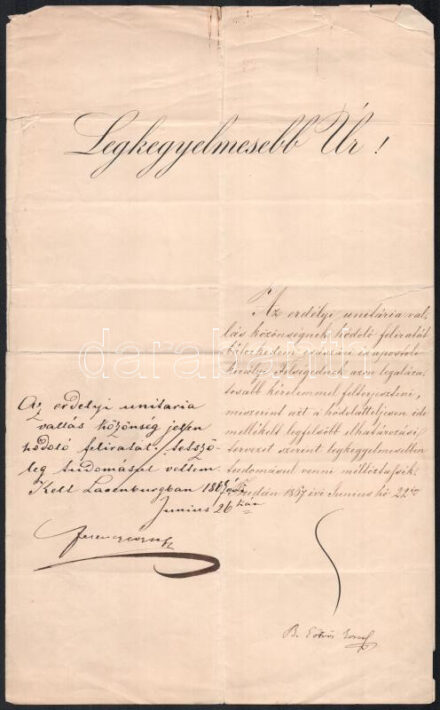 Legkegyelmesebb Úr!
Az erdélyi unitária val-
lás közönségnek hódoló feliratát
bátorkodom császári és apostoli
királyi Felségednek azon legalázа-
tosabb kérelemmel felterjeszteni,
miszerint azt a hódolatteljesen ide
mellékelt legfelsőbb elhatározási
tervezet szerint legkegyelmesebben
tudomásul venni méltóztassék.
Budán 1867 évi Junius hó 22én
B. Eötvös József
Az erdélyi unitaria
vallás közönség jelen
hódoló feliratát tetsző-
leg tudomásul vettem.
Kelt Laxenburgban 1867
Junius 26
Ferencz József
darabanth